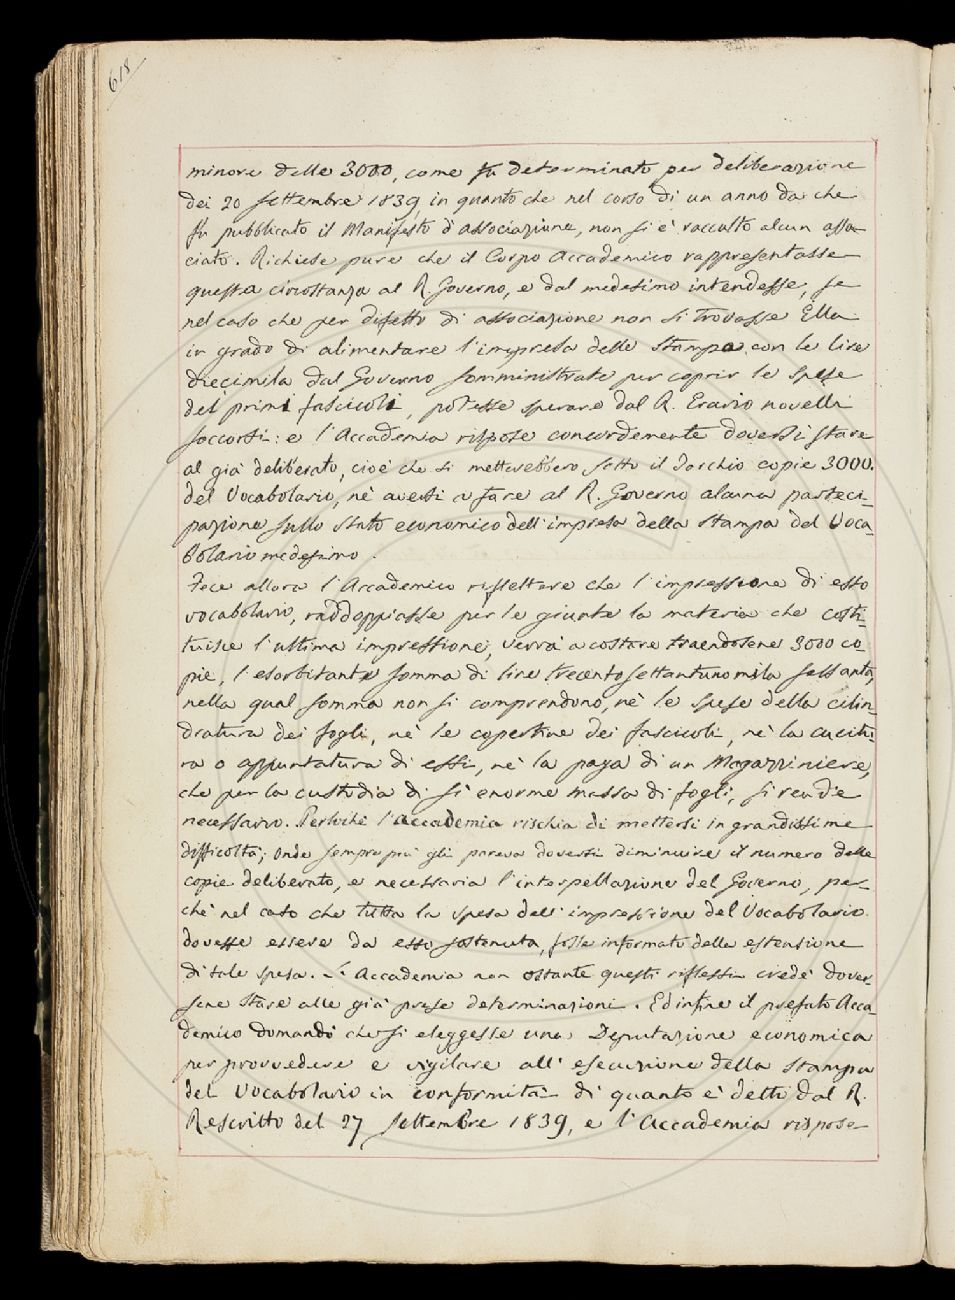 618
minore delle 3000, come fu determinato per deliberazione
dei 20 Settembre 1839, in quanto che nel corso di un anno da che
fu pubblicato il Manifesto d'associazione, non si è raccolto alcun asso-
ciato. Richiese pure che il Corpo Accademico rappresentasse
questa circostanza al R. Governo, e dal medesimo intendesse, se
nel caso che per difetto di associazione non si trovasse Ella
in grado di alimentare l'impresa della stampa con le lire
diecimila dal Governo somministrate per coprir le spese
dei primi fascicoli, potesse sperare dal R. Erario novelli
soccorsi: e l'Accademia rispose concordemente doversi stare
al già deliberato, cioè che si metterebbero sotto il Torchio copie 3000.
del Vocabolario, nè aversi a fare al R. Governo alcuna parteci-
pazione sullo stato economico dell'impresa della stampa del Voca-
bolario medesimo.
Fece allora l'Accademico riflettere che l'impressione di esto
vocabolario, raddoppiasse per le giunte la materia che costi-
tuisce l'ultima impressione, verrà a costare traendosene 3000 co-
pie, l'esorbitante somma di lire trecentosettantunomila sessanta,
nella qual somma non si comprendono, nè le spese della cilin-
dratura dei fogli, nè le copertine dei fascicoli, nè la cucitu-
ra o appuntatura di essi, nè la paga di un Magazziniere,
che per la custodia di sì enorme massa di fogli, si rende
necessario. Perlochè l'Accademia rischia di mettersi in grandissime
difficoltà; onde sempre più gli pareva doversi diminuire il numero delle
copie deliberato, e necessaria l'interpellazione del Governo, per-
chè nel caso che tutta la spesa dell'impressione del Vocabolario
dovesse essere da esso sostenuta, fosse informato della estensione
di tale spesa. L'Accademia non ostante questi riflessi credè dover-
sene stare alle già prese determinazioni. Ed infine il prefato Acca-
demico domandò che si eleggesse una Deputazione economica
per provvedere e vigilare all'esecuzione della stampa
del Vocabolario in conformità di quanto è detto dal R.
Rescritto del 27 Settembre 1839, e l'Accademia rispose